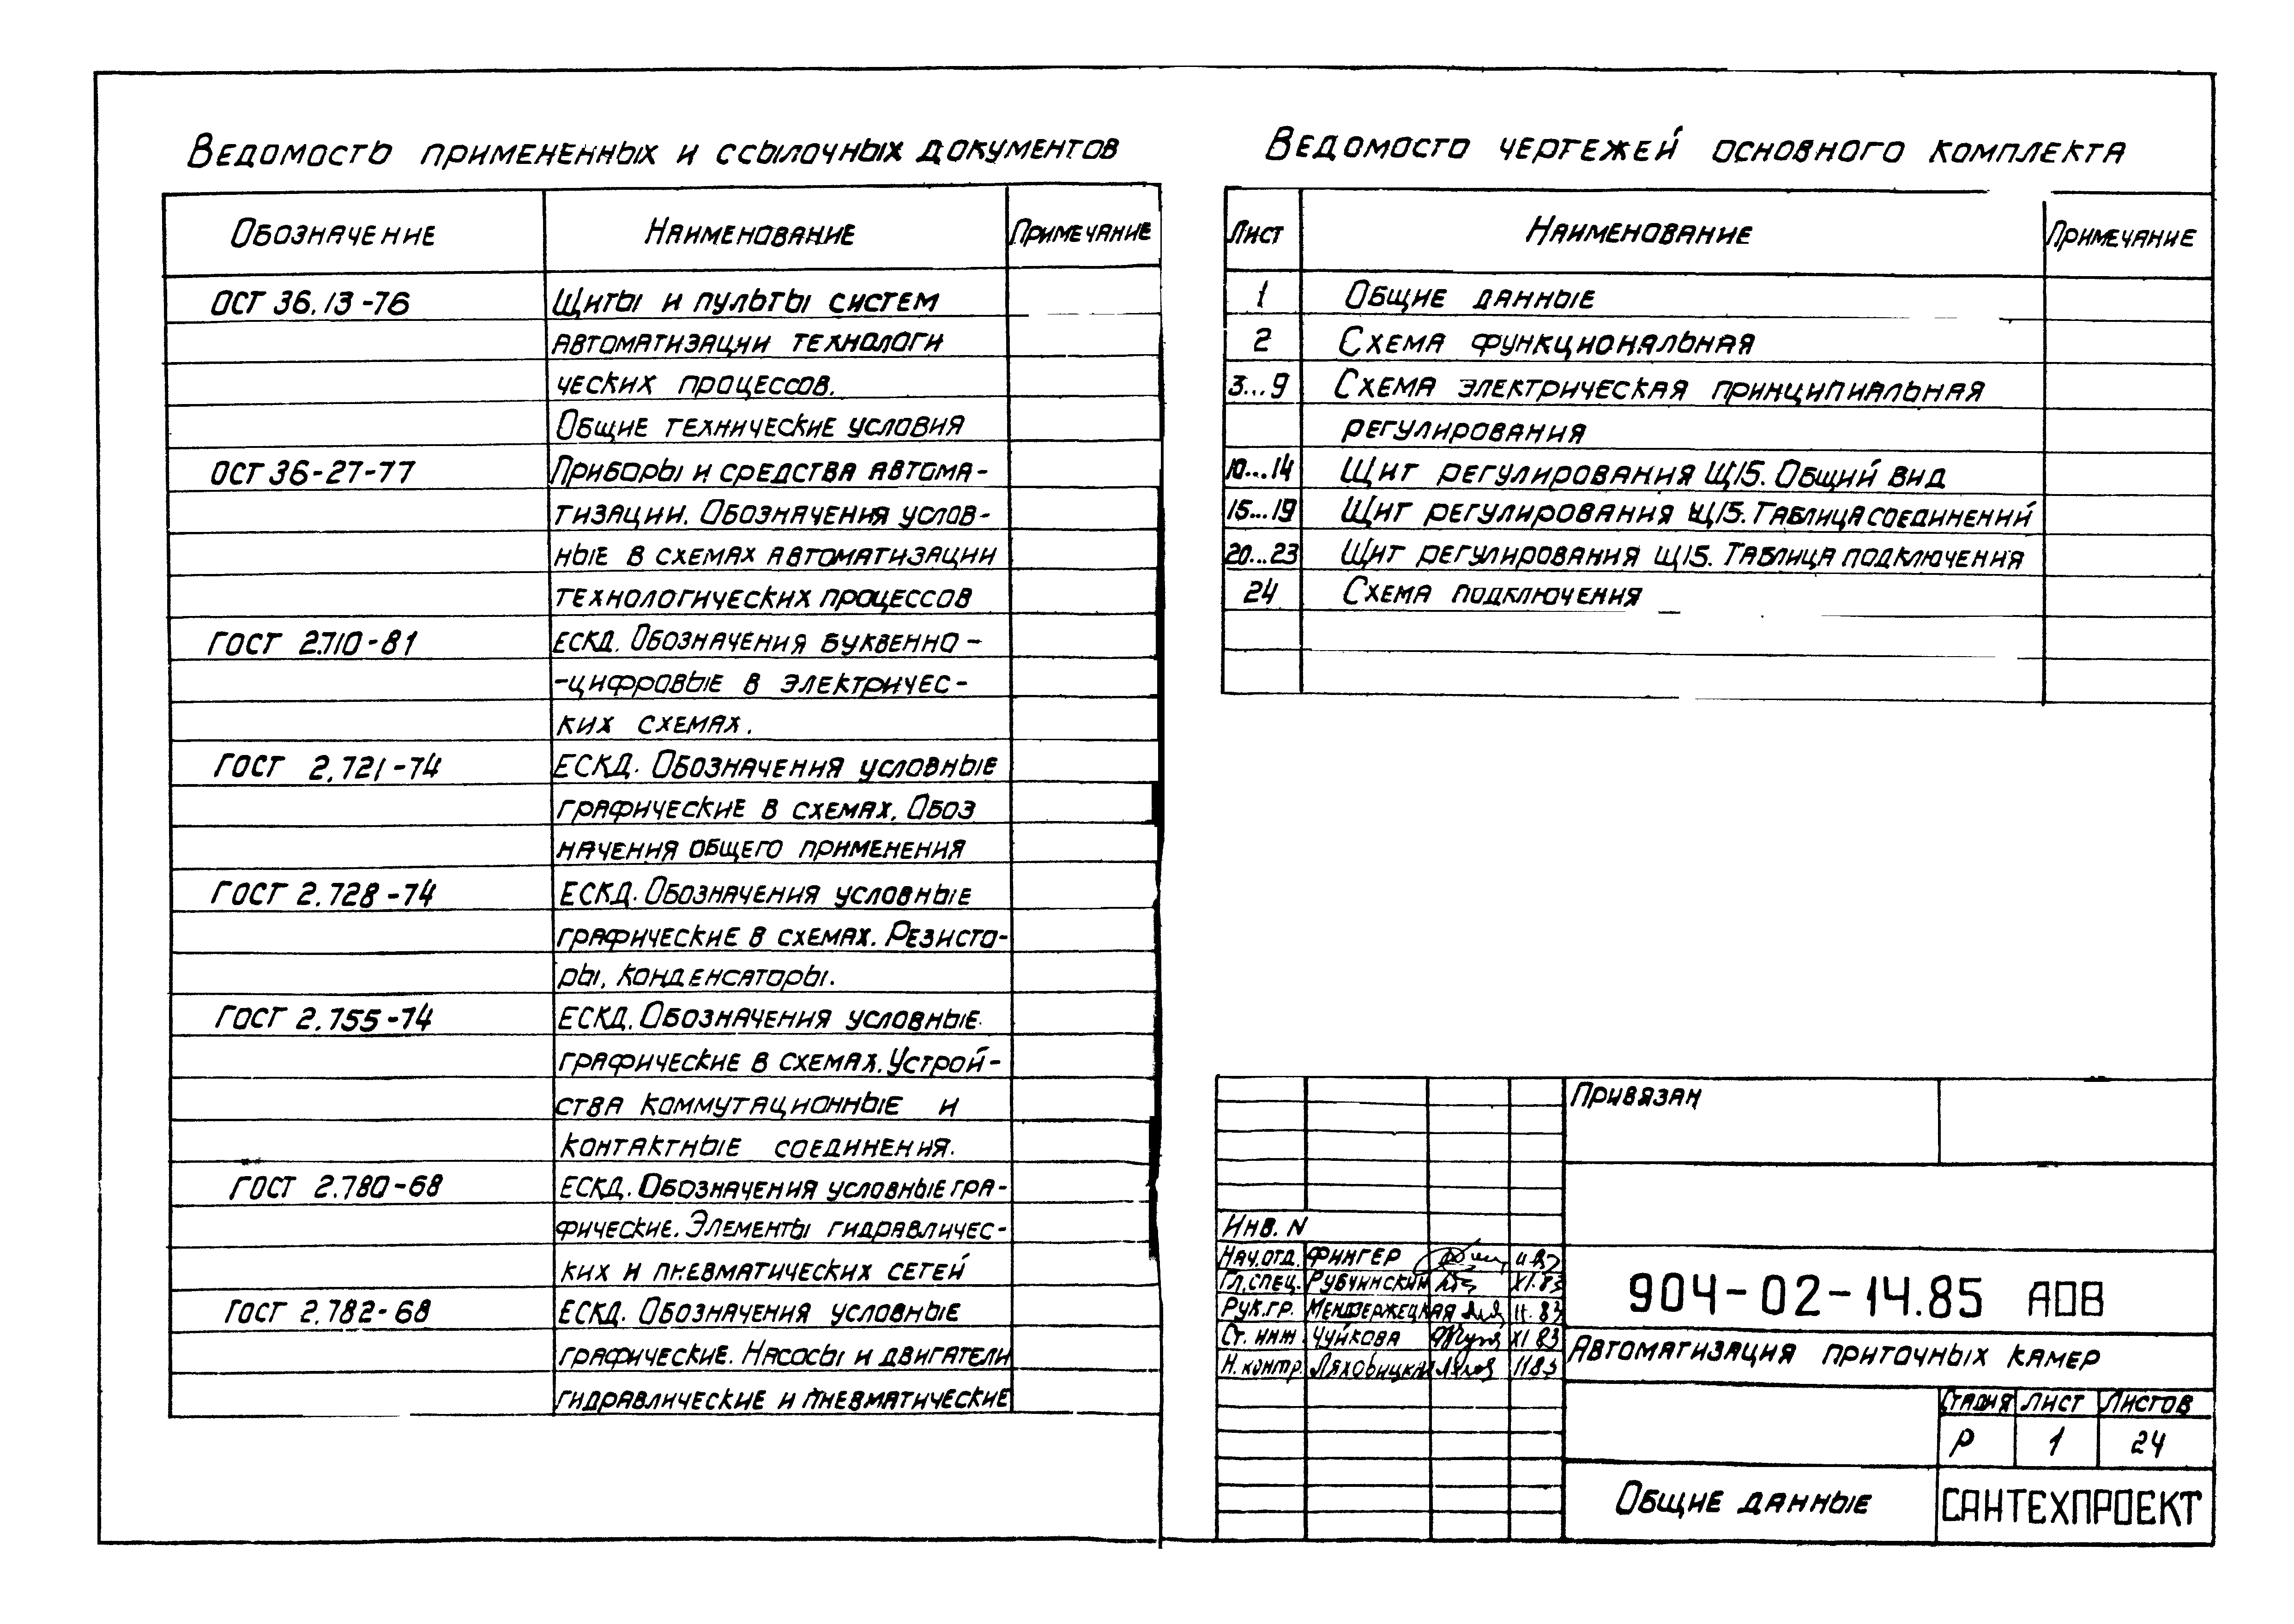 Ведомость примененных и ссылочных документов
Обозначение Наименование Примечание
ОСТ 36.13-76 Щиты и пульты систем
автоматизации технологи
ческих процессов.
Общие технические условия
ОСТ 36-27-77 Приборы и средства автома-
тизации. Обозначения услов-
ные в схемах автоматизации
технологических процессов
ГОСТ 2.710-81 ЕСКД. Обозначения буквенно-
-цифровые в электричес-
ких схемах.
ГОСТ 2.721-74 ЕСКД. Обозначения условные
графические в схемах. Обоз
начения общего применения
ГОСТ 2.728-74 ЕСКД. Обозначения условные
графические в схемах. Резисто-
ры, конденсаторы.
ГОСТ 2.755-74 ЕСКД. Обозначения условные
графические в схемах. Устрой-
ства коммутационные и
контактные соединения.
ГОСТ 2.780-68 ЕСКД. Обозначения условные гра-
фические. Элементы гидравличес-
ких и пневматических сетей
ГОСТ 2.782-68 ЕСКД. Обозначения условные
графические. Насосы и двигатели
гидравлические и пневматические
Ведомость чертежей основного комплекта
Лист Наименование Примечание
1 Общие данные
2 Схема функциональная
3...9 Схема электрическая принципиальная
регулирования
10...14 Щит регулирования Щ15. Общий вид
15...19 Щит регулирования Щ15. Таблица соединений
20...23 Щит регулирования Щ15. Таблица подключения
24 Схема подключения
Привязан
Инв. N
Нач.отд. Фингер
Гл.спец. Рубчинский XI.83
Рук.гр. Мендзержецкая 11.83
Ст. инж. Чуйкова XI 83
Н. контр. Ляховицкая 11 83
904-02-14.85 АОВ
Автоматизация приточных камер
Стадия Лист Листов
Р 1 24
Общие данные
САНТЕХПРОЕКТ